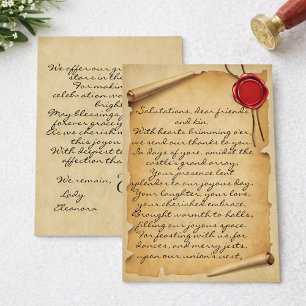 We offer our gr
stars in the
For makin
celebration won
brigh
May blessings,
forever gracey
As we cherish
this joyou
With deepest
affection tha
We remain,
Lady
Eleanora
Salutations, dear friends
and kin,
With hearts brimming o'er,
we send our thanks to you.
In days of yore, amidst the
castle's grand array,
Your presence lent
splendor to our joyous day.
Your laughter, your love,
your cherished embrace,
Brought warmth to halls,
filling our joyous space.
For feasting with us, for
dances, and merry jests,
upon our union's vest,